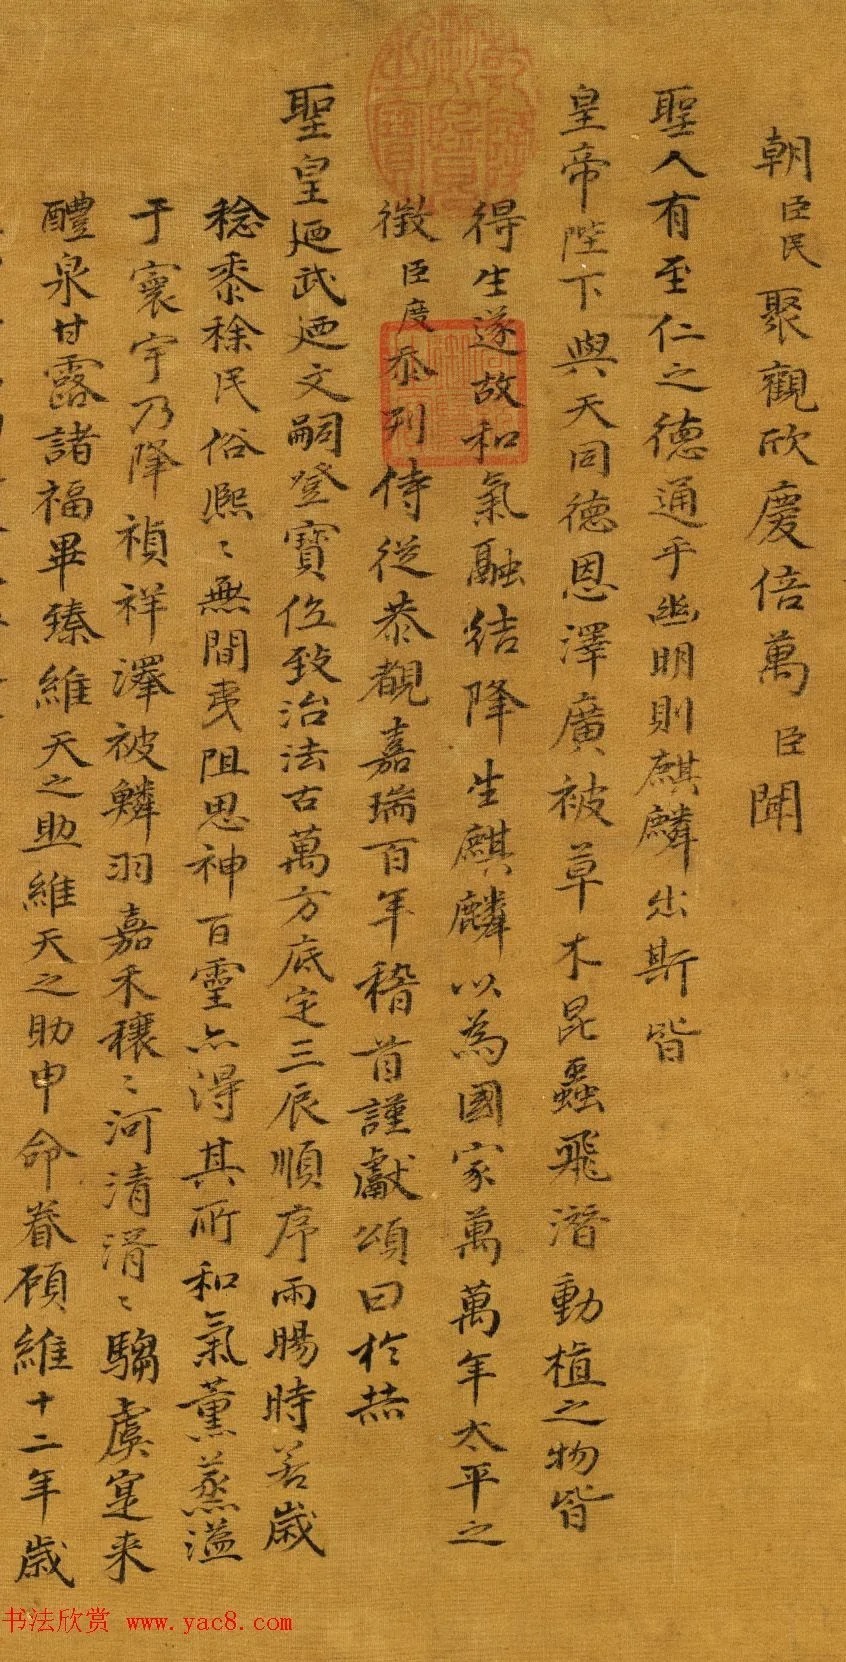 朝臣民聚觀欣慶倍萬臣聞
聖人有至仁之德通乎幽明則麒麟出斯皆
皇帝陛下與天同德恩澤廣被草木昆蟲飛潛動植之物皆
得生遂故和氣融結降生麒麟以為國家萬萬年太平之
徵臣度忝列侍從恭覩嘉瑞百年稽首謹獻頌曰於赫
聖皇廼武廼文嗣登寶位致治法古萬方底定三辰順序雨暘時若歲
稔黍稌民俗熙〻無間夷阻思神百靈亦得其所和氣薰蒸溢
于寰宇乃降禎祥澤被鱗羽嘉禾穰〻河清湑〻騶虞寔来
醴泉甘露諸福畢臻維天之助維天之助申命眷顧維十二年歲
乾隆御覽之寶
书法欣赏 www.yac8.com